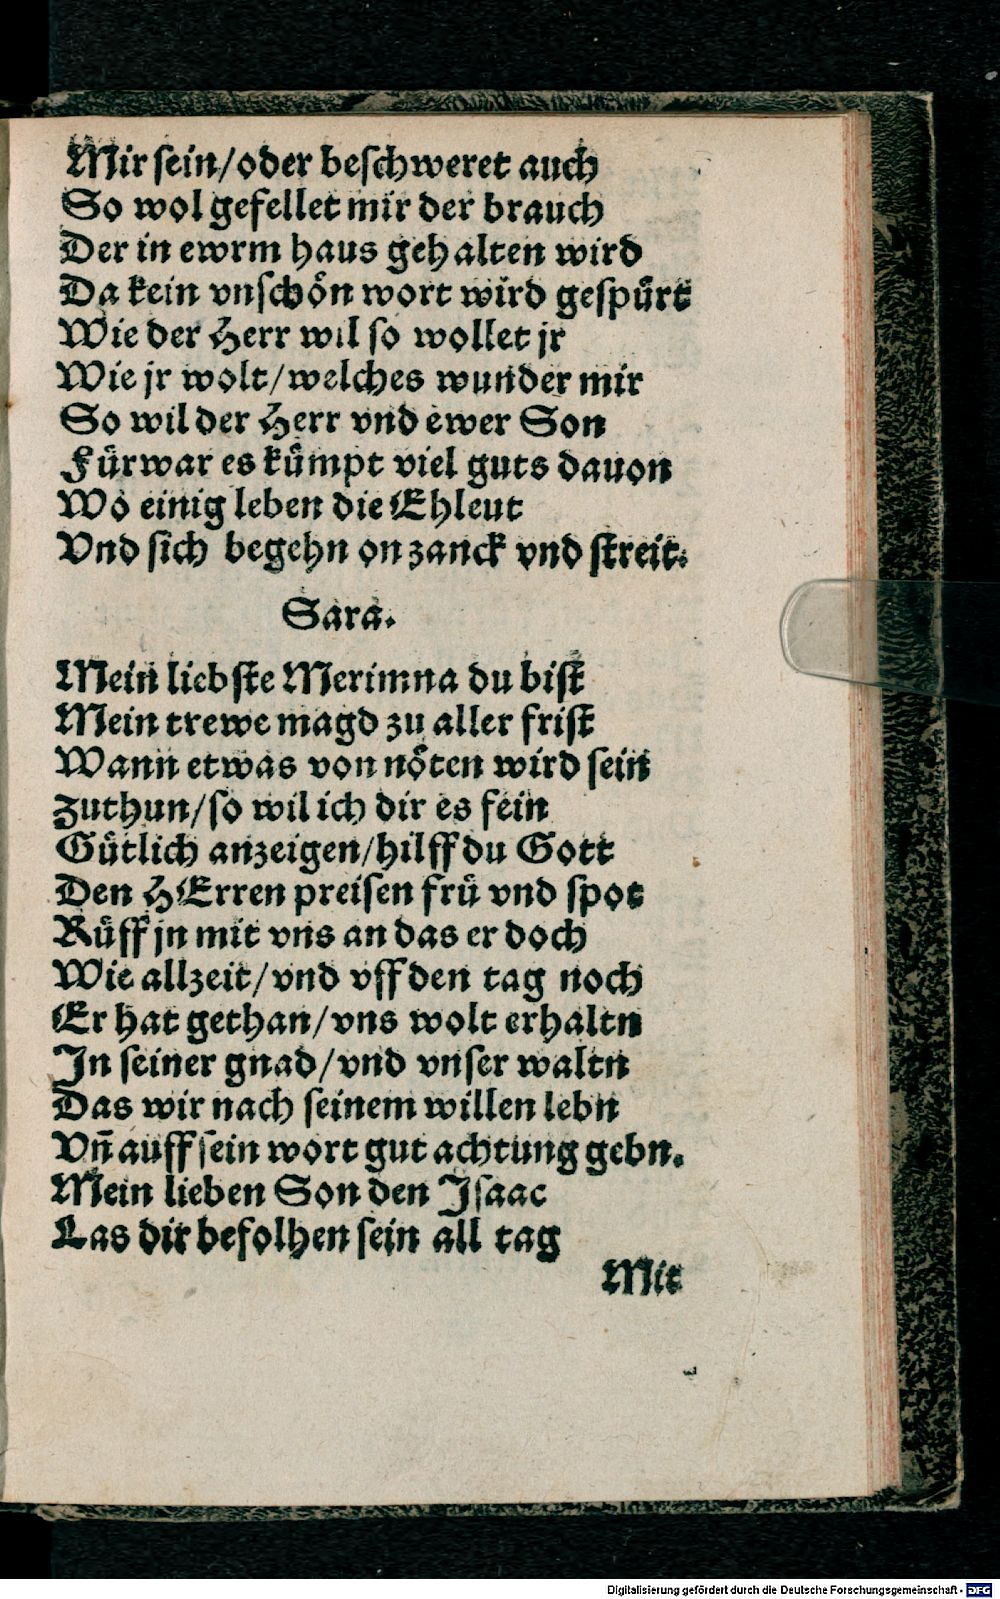 Mir sein/oder beschweret auch
So wol gefellet mir der brauch
Der in ewrm haus gehalten wird
Da kein vnschön wort wird gespürt
Wie der Herr wil so wollet jr
Wie jr wolt/welches wunder mir
So wil der Herr vnd ewer Son
Fürwar es kümpt viel guts dauon
Wo einig leben die Ehleut
Vnd sich begehn on zanck vnd streit.
Sara.
Mein liebste Merimna du bist
Mein trewe magd zu aller frist
Wann etwas von nöten wird sein
Zuthun/so wil ich dir es fein
Gütlich anzeigen/hilff du Gott
Den HErren preisen frü vnd spot
Rüff jn mit vns an das er doch
Wie allzeit/vnd vff den tag noch
Er hat gethan/vns wolt erhaltn
In seiner gnad/vnd vnser waltn
Das wir nach seinem willen lebn
Vñ auff sein wort gut achtung gebn.
Mein lieben Son den Isaac
Las dir befolhen sein all tag
Mit
Digitalisierung gefördert durch die Deutsche Forschungsgemeinschaft - DFG